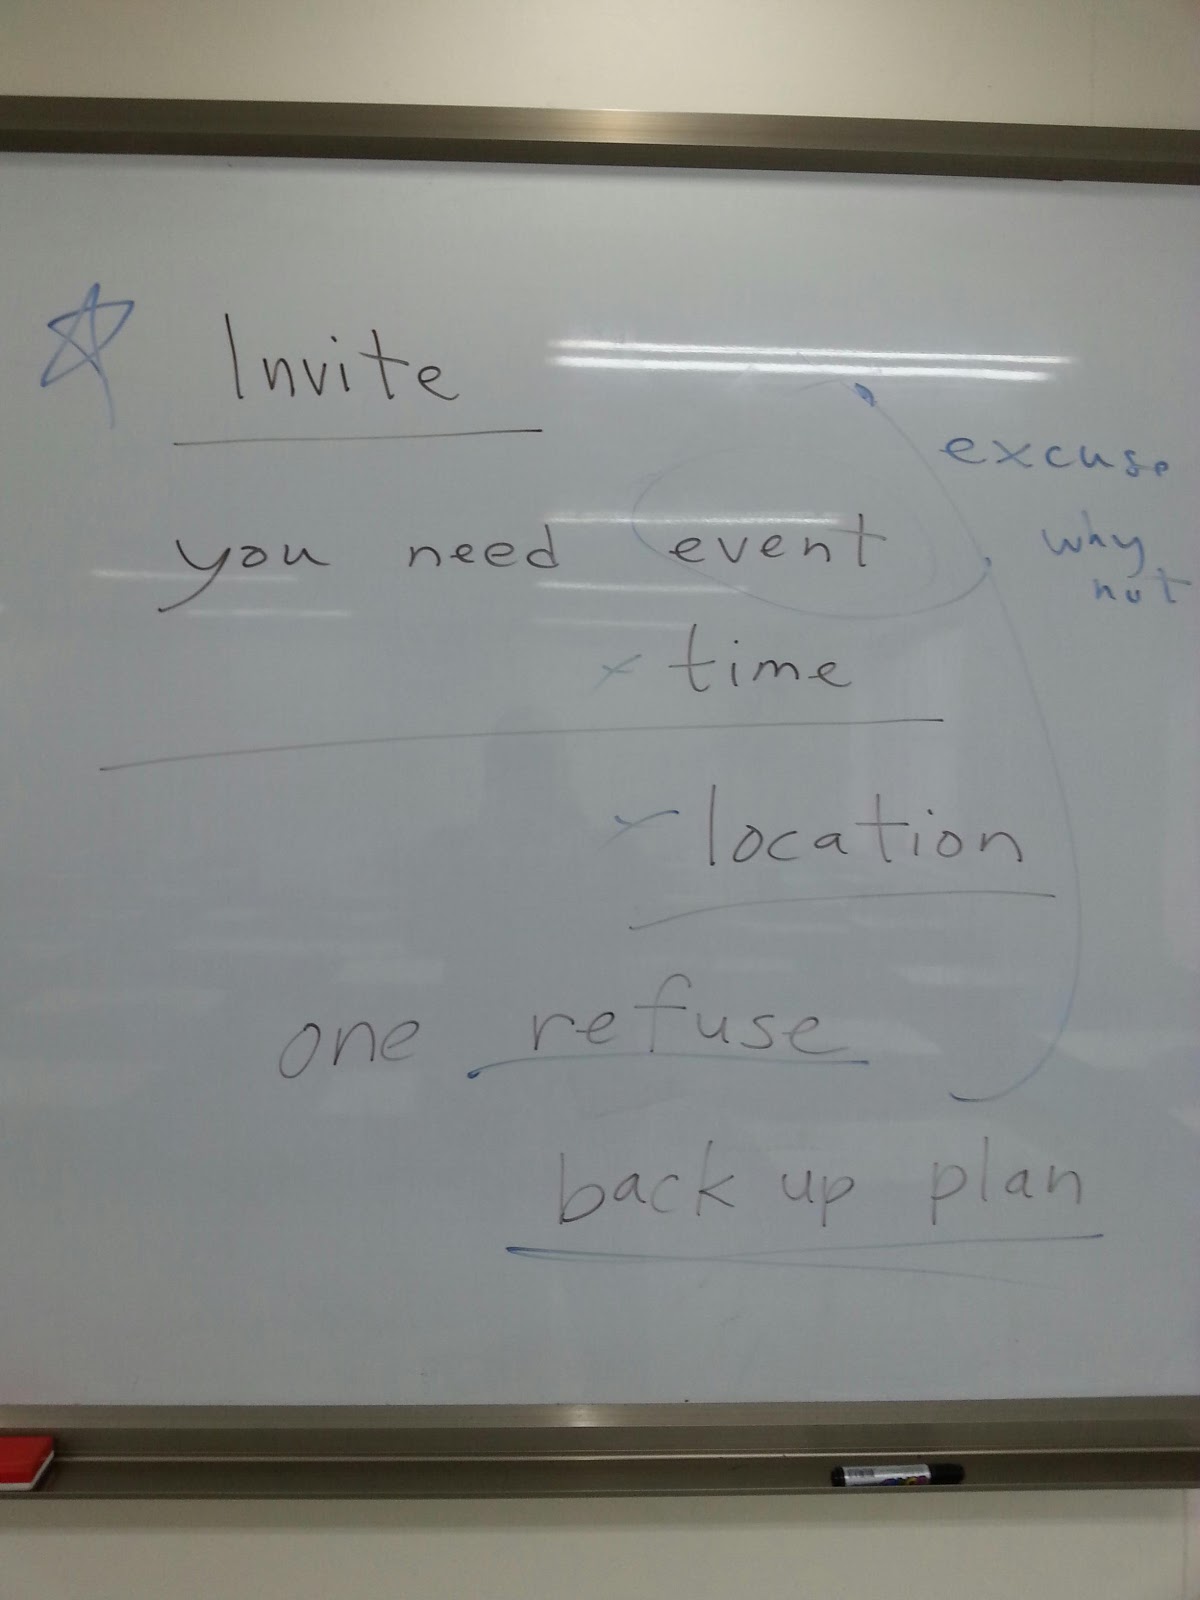 Invite
you need event
x time
x location
one refuse
back up plan
excuse
why
not